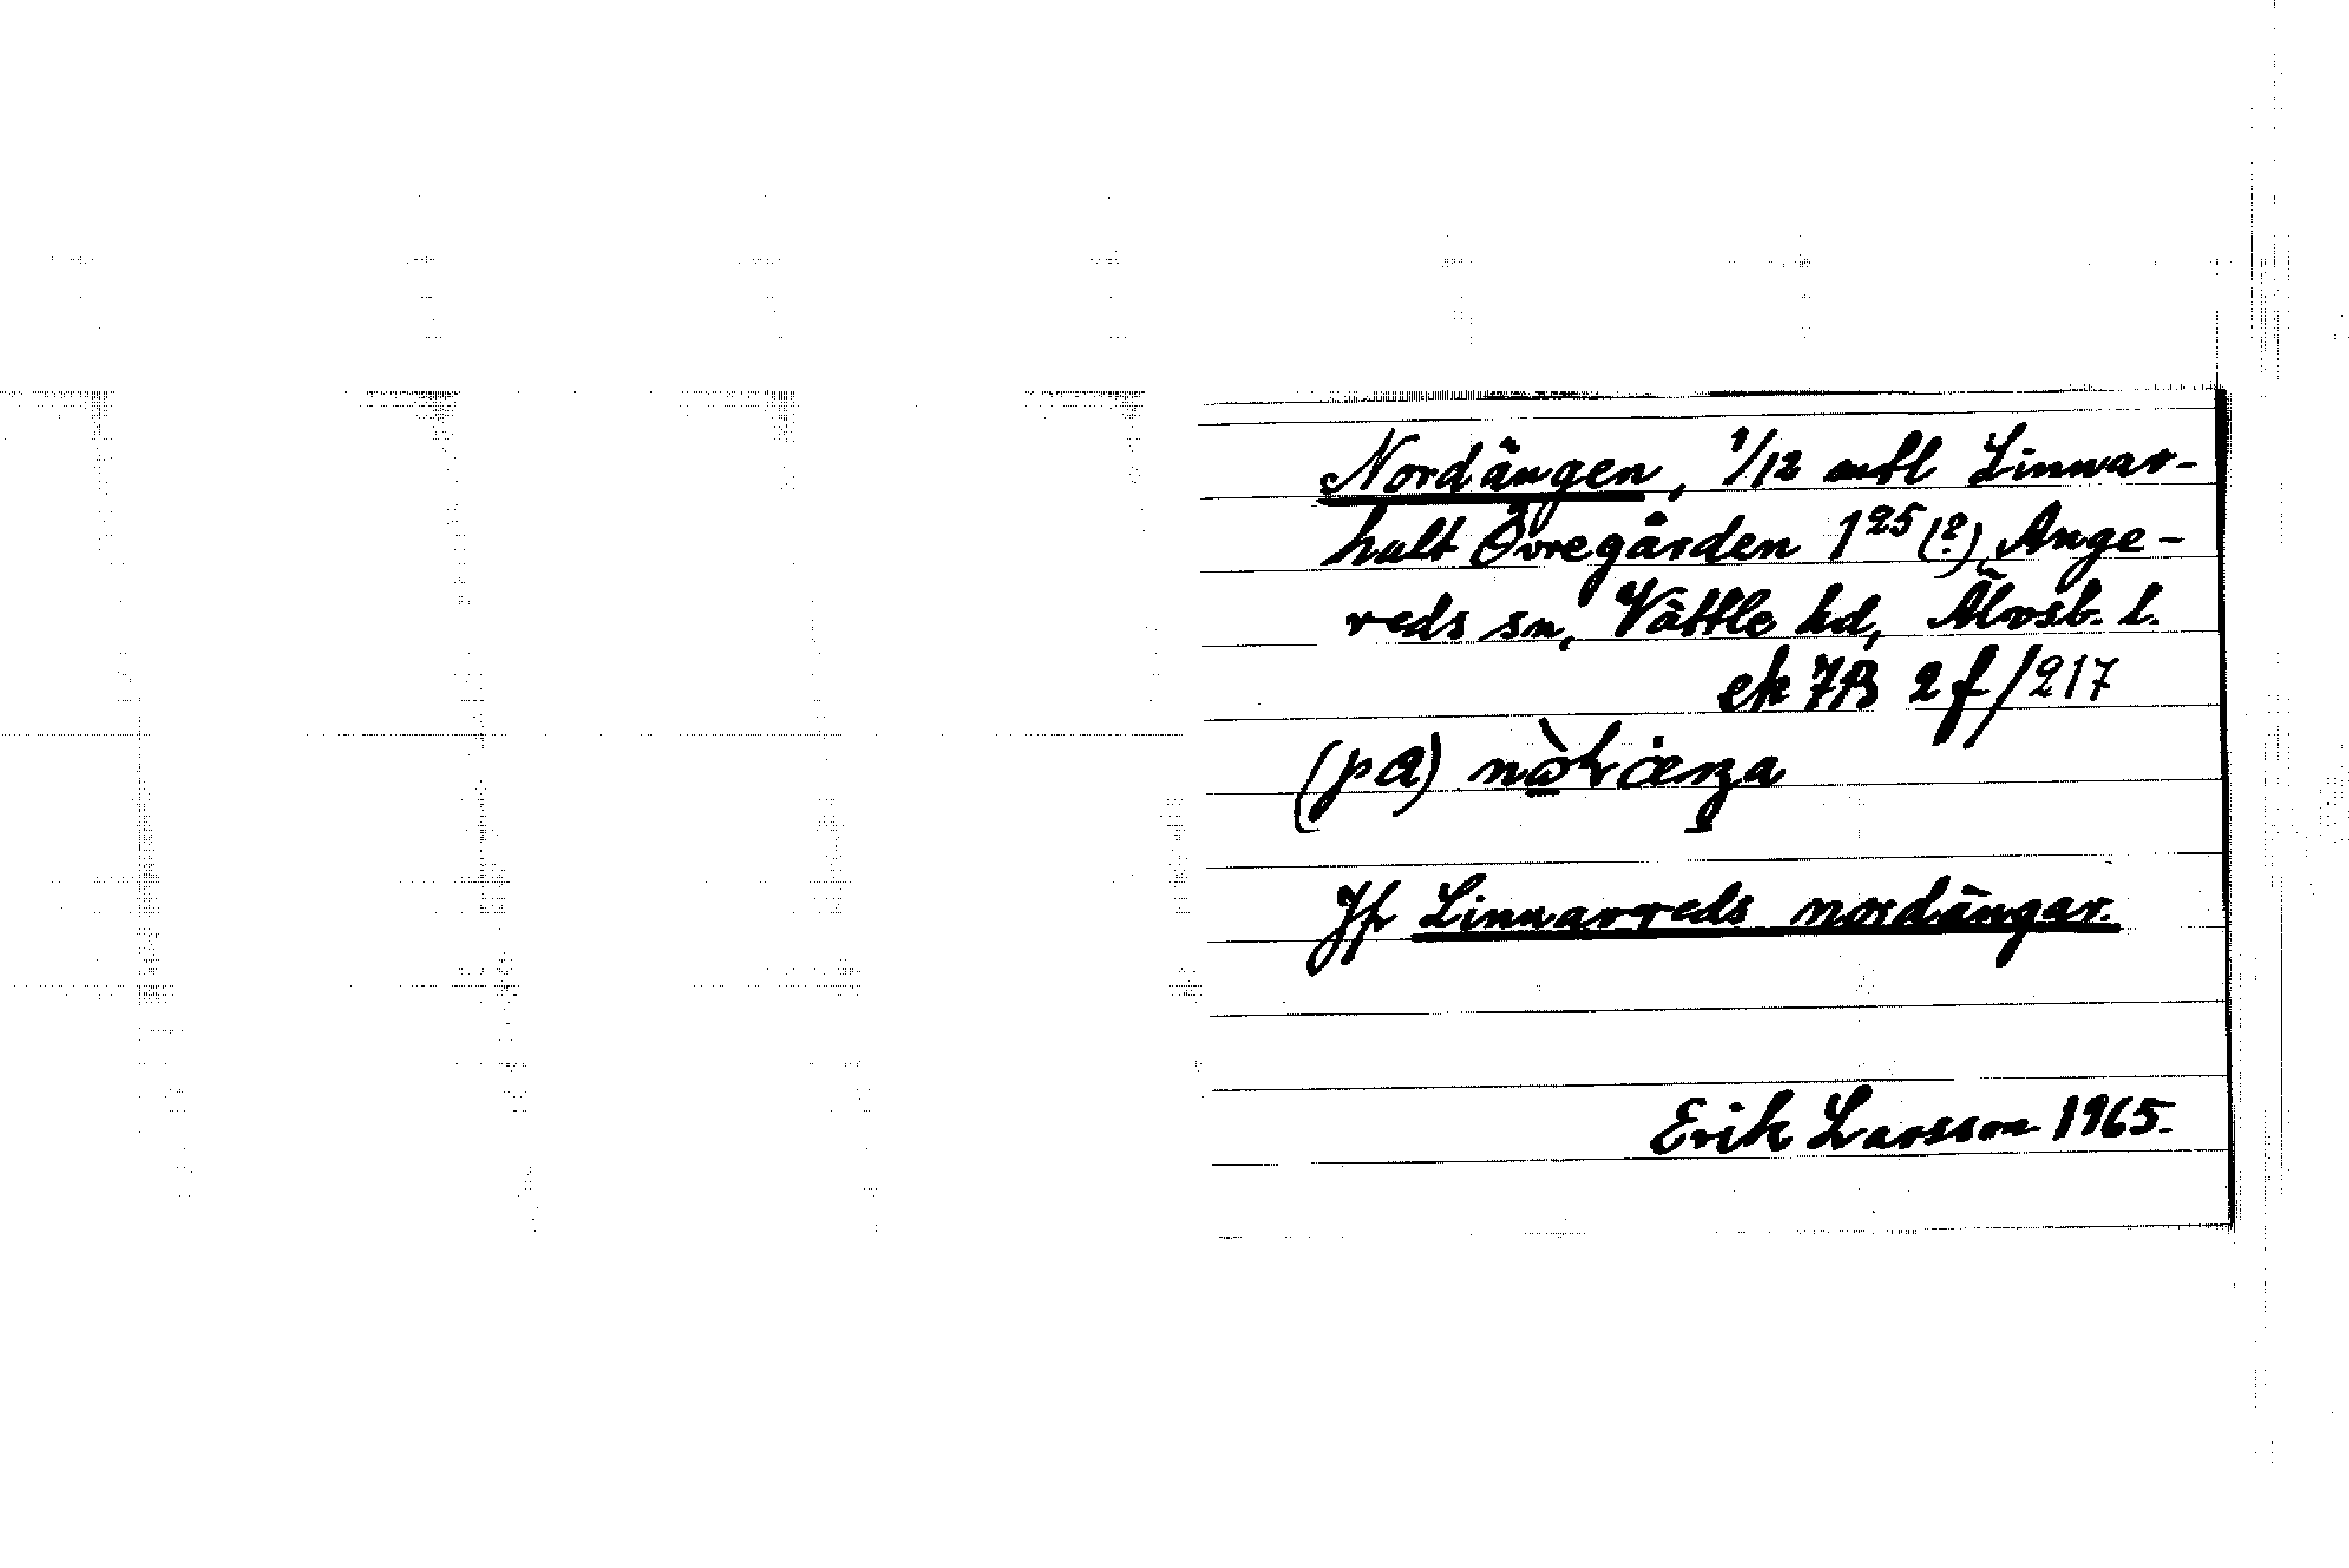 Nordängen, 1/12 mtl Linnar-
hult Övregården 1²⁵(?), Ange-
reds sn, Vättle hd, Älvsb. l.
ek 7B 2f/217
(pa)
Jfr Linnarreds nordängar.
Erik Larsson 1965.